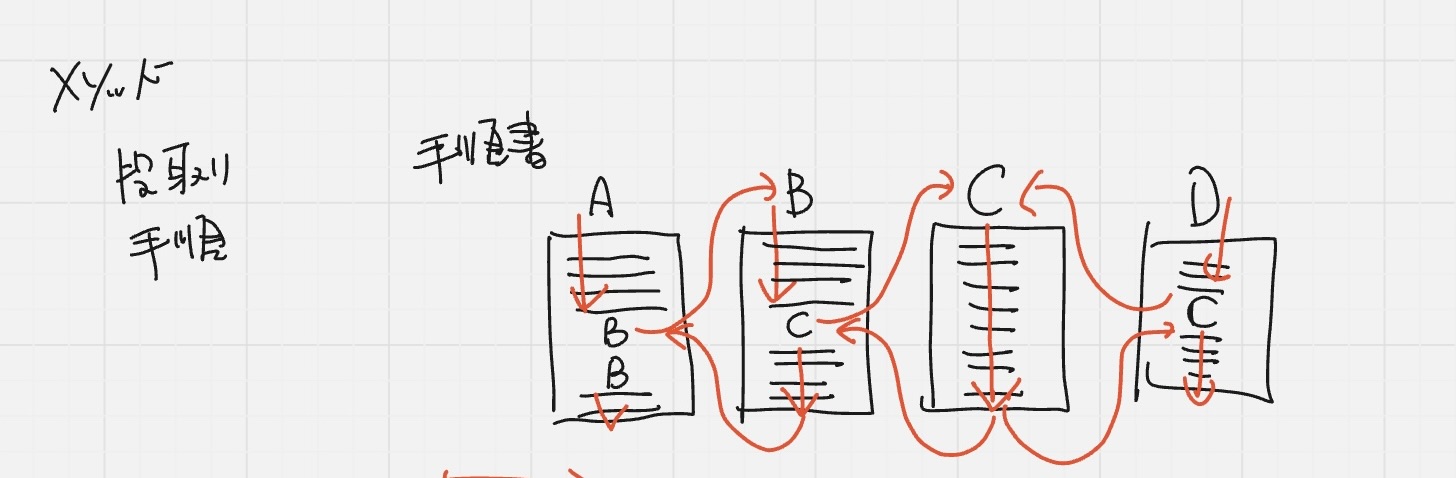 メソッド
段取り
手順
手順書
A B C D
B C C
B